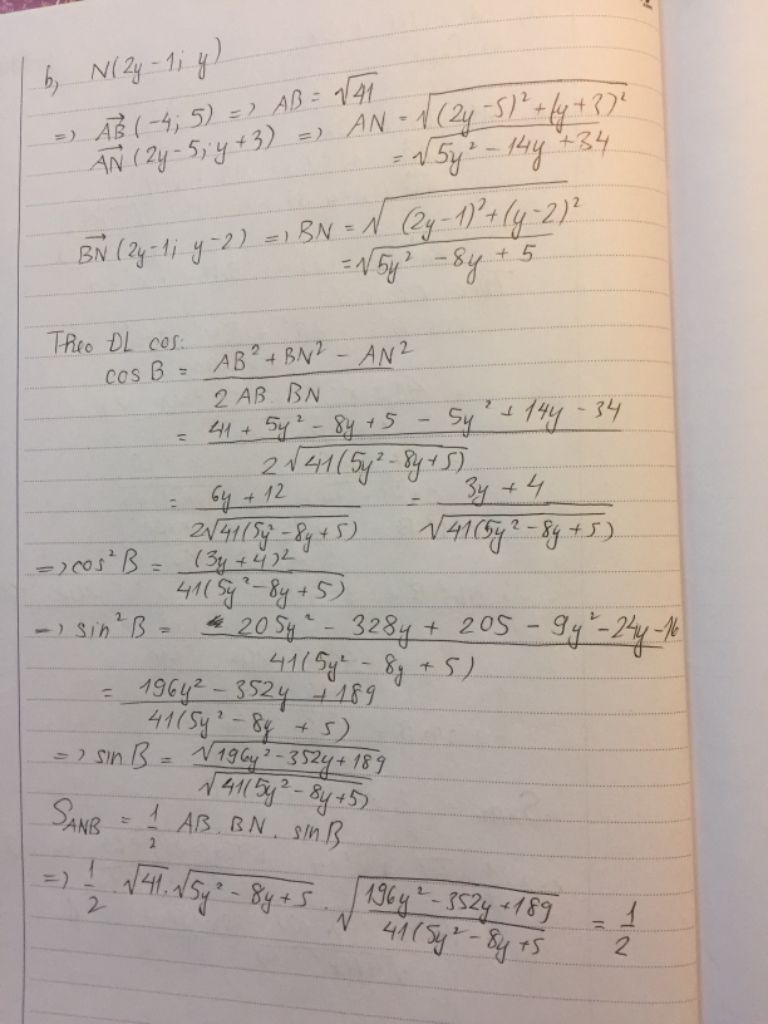 b, N(2y-1; y)
=> AB→(-4; 5) => AB = √41
AN→(2y-5; y+3) => AN = √((2y-5)² + (y+3)²)
= √(5y² - 14y + 34)
BN→(2y-1; y-2) => BN = √((2y-1)² + (y-2)²)
= √(5y² - 8y + 5)
Theo ĐL cos:
cos B = (AB² + BN² - AN²)/(2 AB. BN)
= (41 + 5y² - 8y + 5 - 5y² + 14y - 34)/(2√(41(5y² - 8y + 5)))
= (6y + 12)/(2√(41(5y² - 8y + 5))) = (3y + 4)/(√(41(5y² - 8y + 5)))
=> cos² B = (3y + 4)²/(41(5y² - 8y + 5))
=> sin² B = (205y² - 328y + 205 - 9y² - 24y - 16)/(41(5y² - 8y + 5))
= (196y² - 352y + 189)/(41(5y² - 8y + 5))
=> sin B = √(196y² - 352y + 189)/√(41(5y² - 8y + 5))
S_ANB = 1/2 AB. BN. sin B
=> 1/2 . √41 . √(5y² - 8y + 5) . √((196y² - 352y + 189)/(41(5y² - 8y + 5)) = 1/2